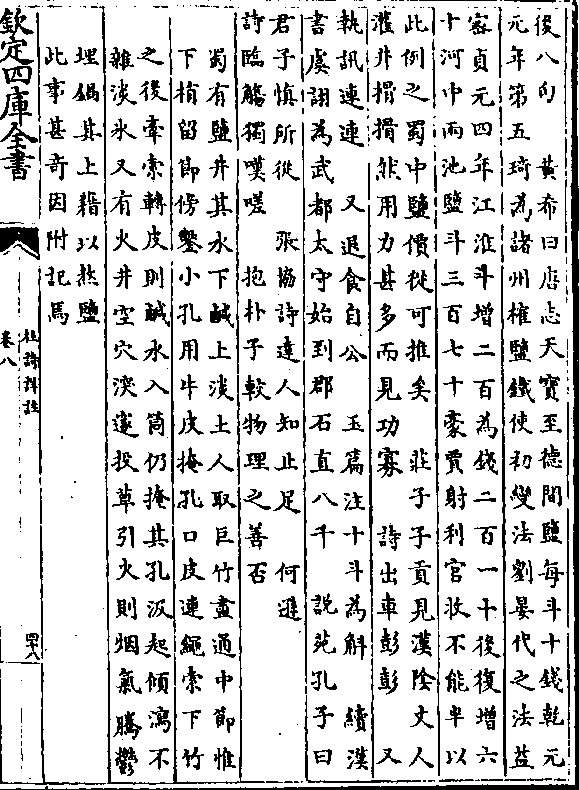 後八句 黃希曰唐志天寶至德間鹽每斗十錢乾元
元年第五琦為諸州榷鹽鐵使初變法劉晏代之法益
密貞元四年江淮斗增二百為錢二百一十後復增六
十河中兩池鹽斗三百七十豪賈射利官收不能半以
此例之蜀中鹽價從可推矣 莊子子貢見漢陰丈人
灌井搰搰然用力甚多而見功寡 詩出車彭彭 又
執訊連連 又退食自公 玉篇注十斗為斛 續漢
書虞詡為武都太守始到郡石直八千 說苑孔子曰
君子慎所從 張協詩達人知止足 何遜
詩臨觴獨嘆嗟 抱朴子較物理之善否
蜀有鹽井其水下鹹上淡土人取巨竹盡通中節惟
下梢留節傍鑿小孔用牛皮掩孔口皮連繩索下竹
之後牽索轉皮則鹹水入筒仍掩其孔汲起傾瀉不
雜淡水又有火井空穴深邃投草引火則烟氣騰鬱
埋鍋其上藉以熬鹽
此事甚奇因附記焉
欽定四庫全書
杜詩詳註
卷八
四十八